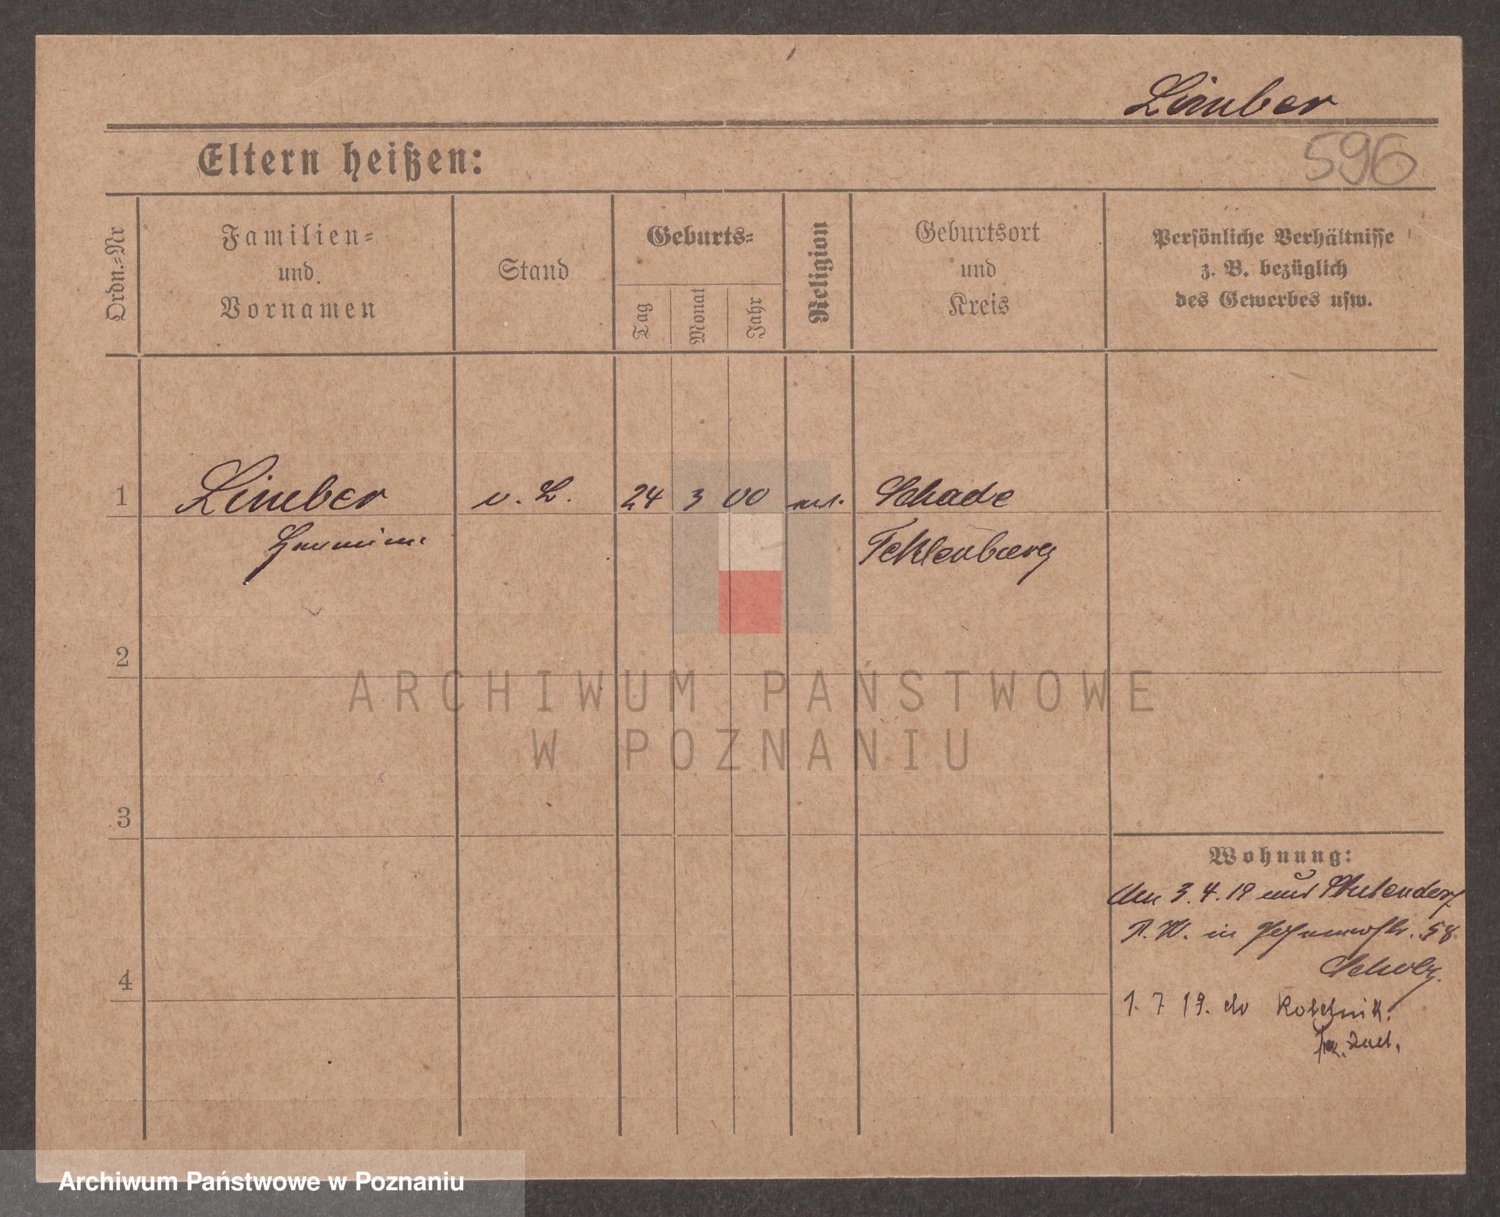 Limber
Eltern heißen:
596
Ordn.-Nr
Familien-
und
Vornamen
Stand
Geburts-
Tag
Monat
Jahr
Religion
Geburtsort
und
Kreis
Persönliche Verhältnisse
z. B. bezüglich
des Gewerbes usw.
1
Limber
24 3 00
Schade
2
ARCHIWUM PAŃSTWOWE
W POZNANIU
3
Wohnung:
3. 4. 19
in 58
4
Scholz
1. 7 19.
Archiwum Państwowe w Poznaniu